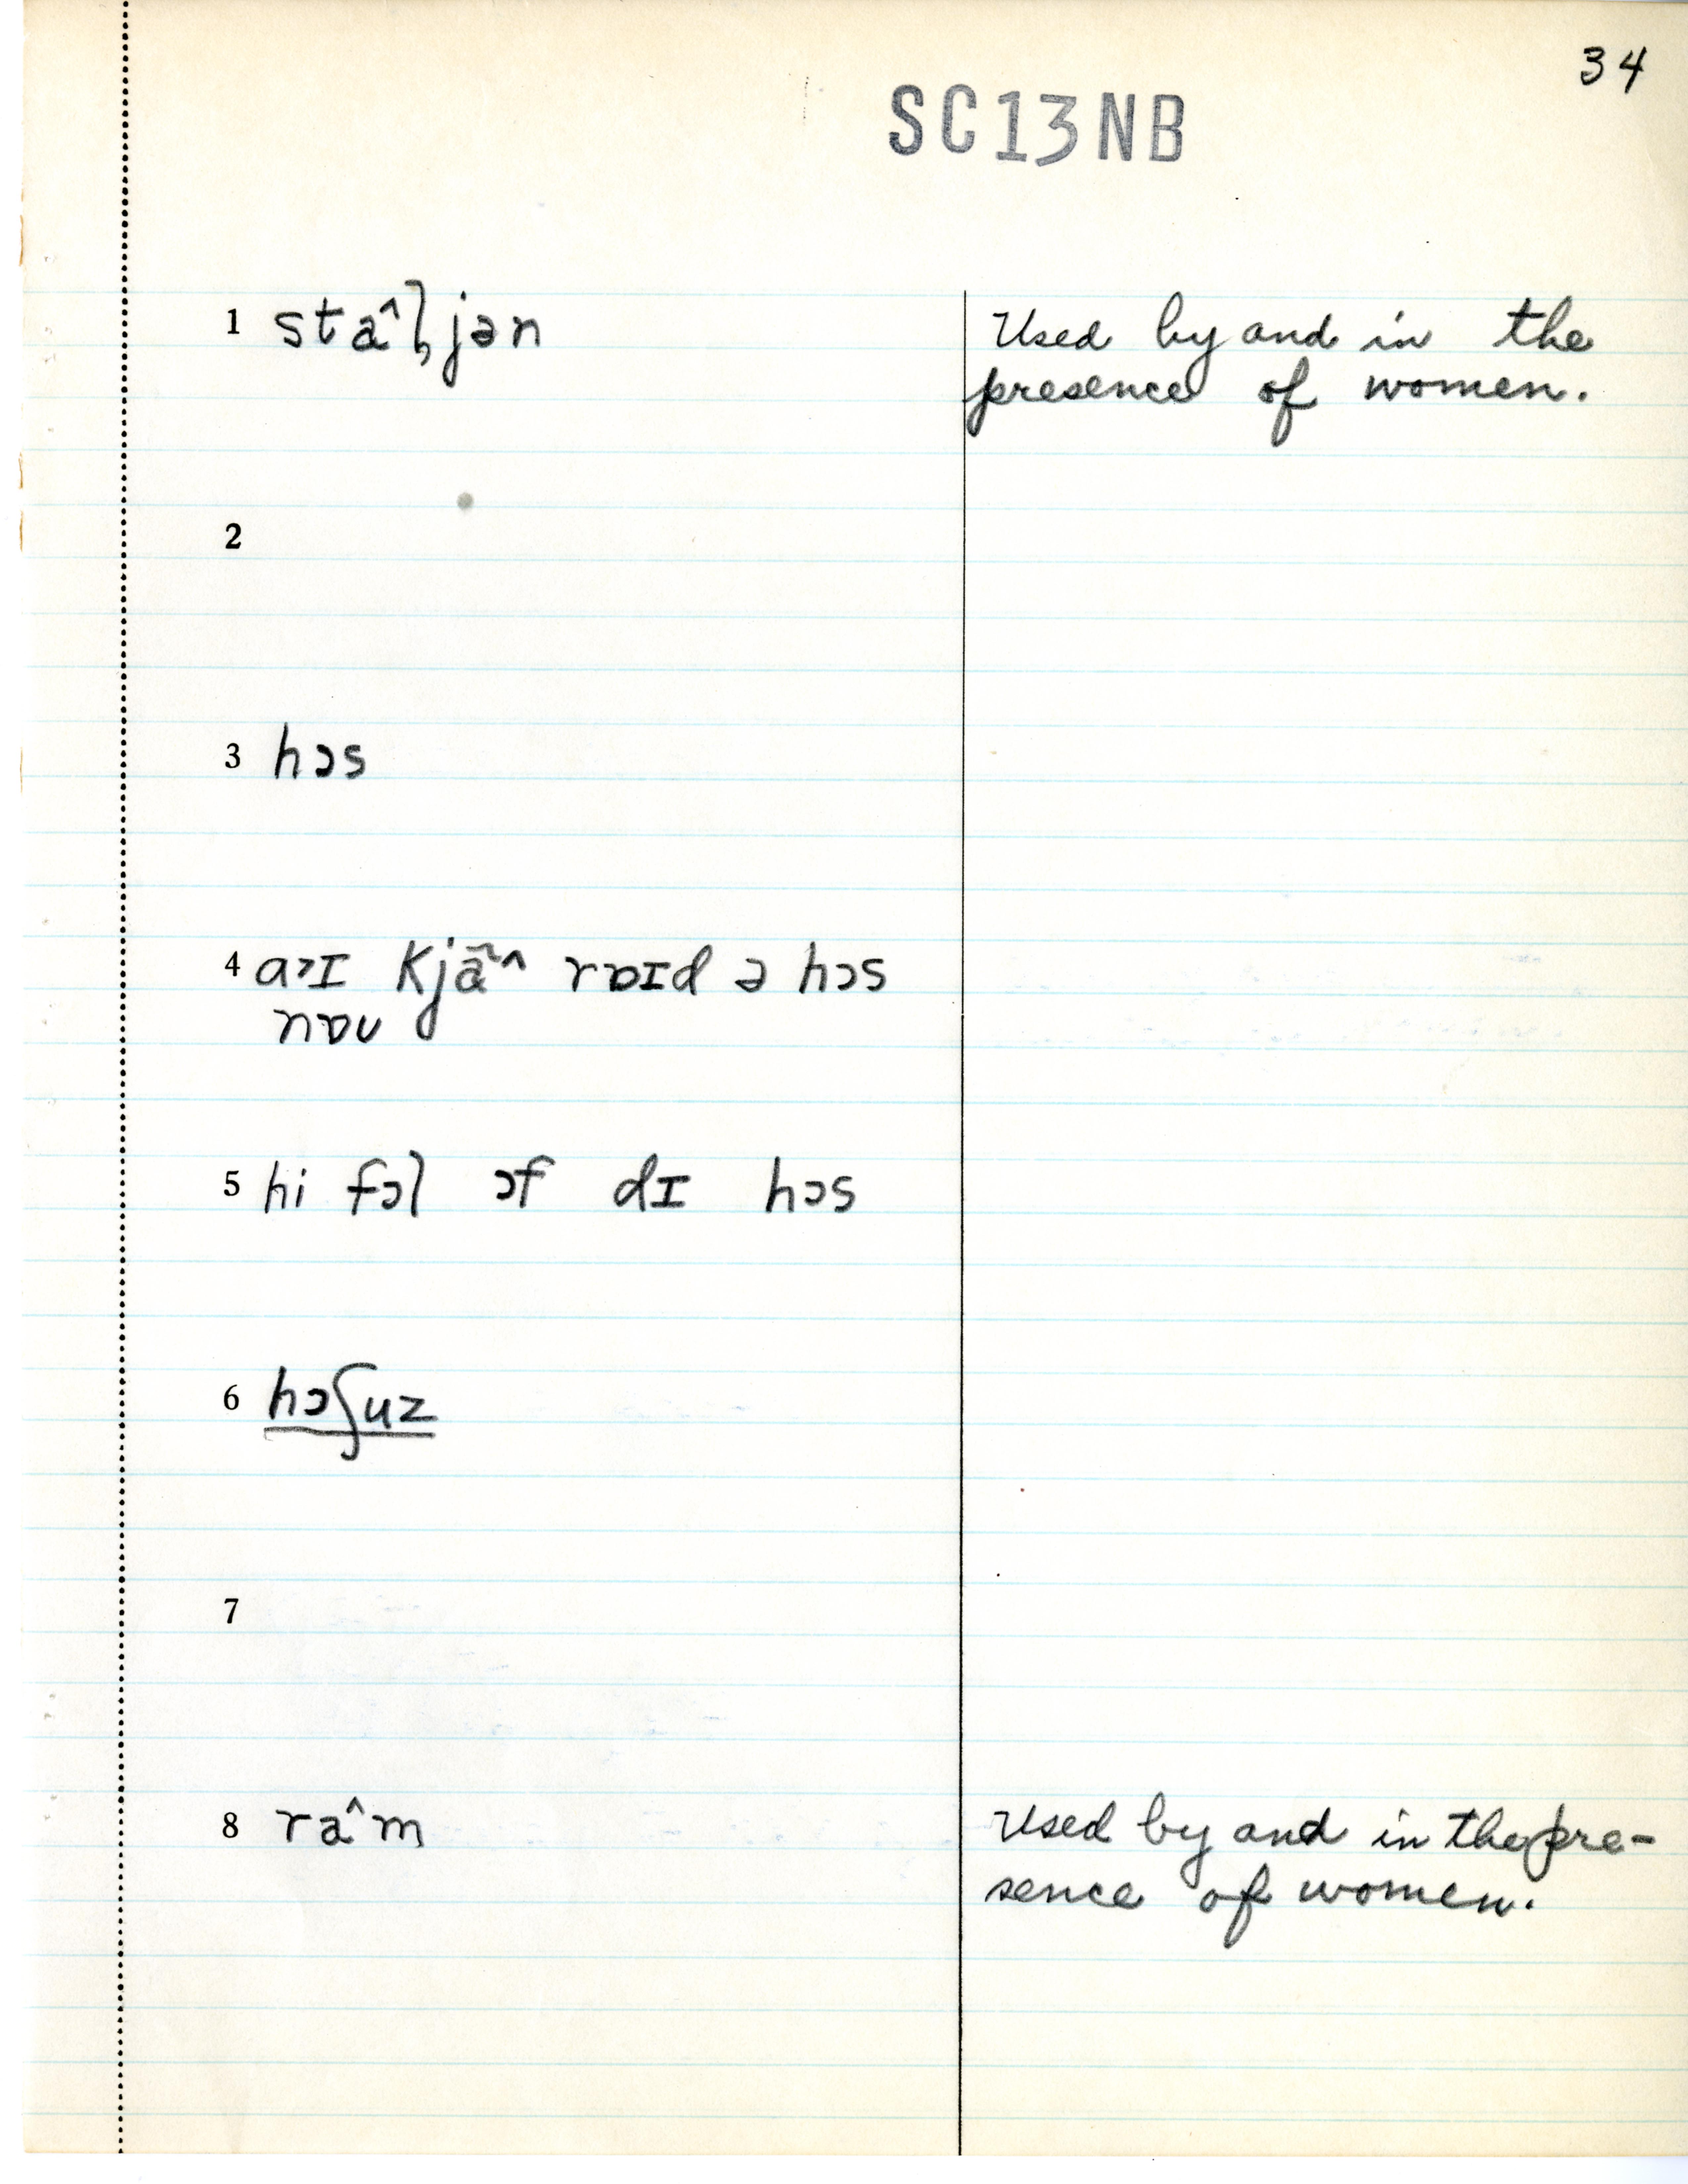 34
SC13NB
1 staˆl̡jən
Used by and in the
presence of women.
2
3 hɔs
4 a˃ɪ kjã˄ rɒɪd ə hɔs
nɒʊ
5 hi fɔl ɔf dɪ hɔs
6 hɔʃuz
7
8 raˆm
Used by and in the pre-
sence of women.